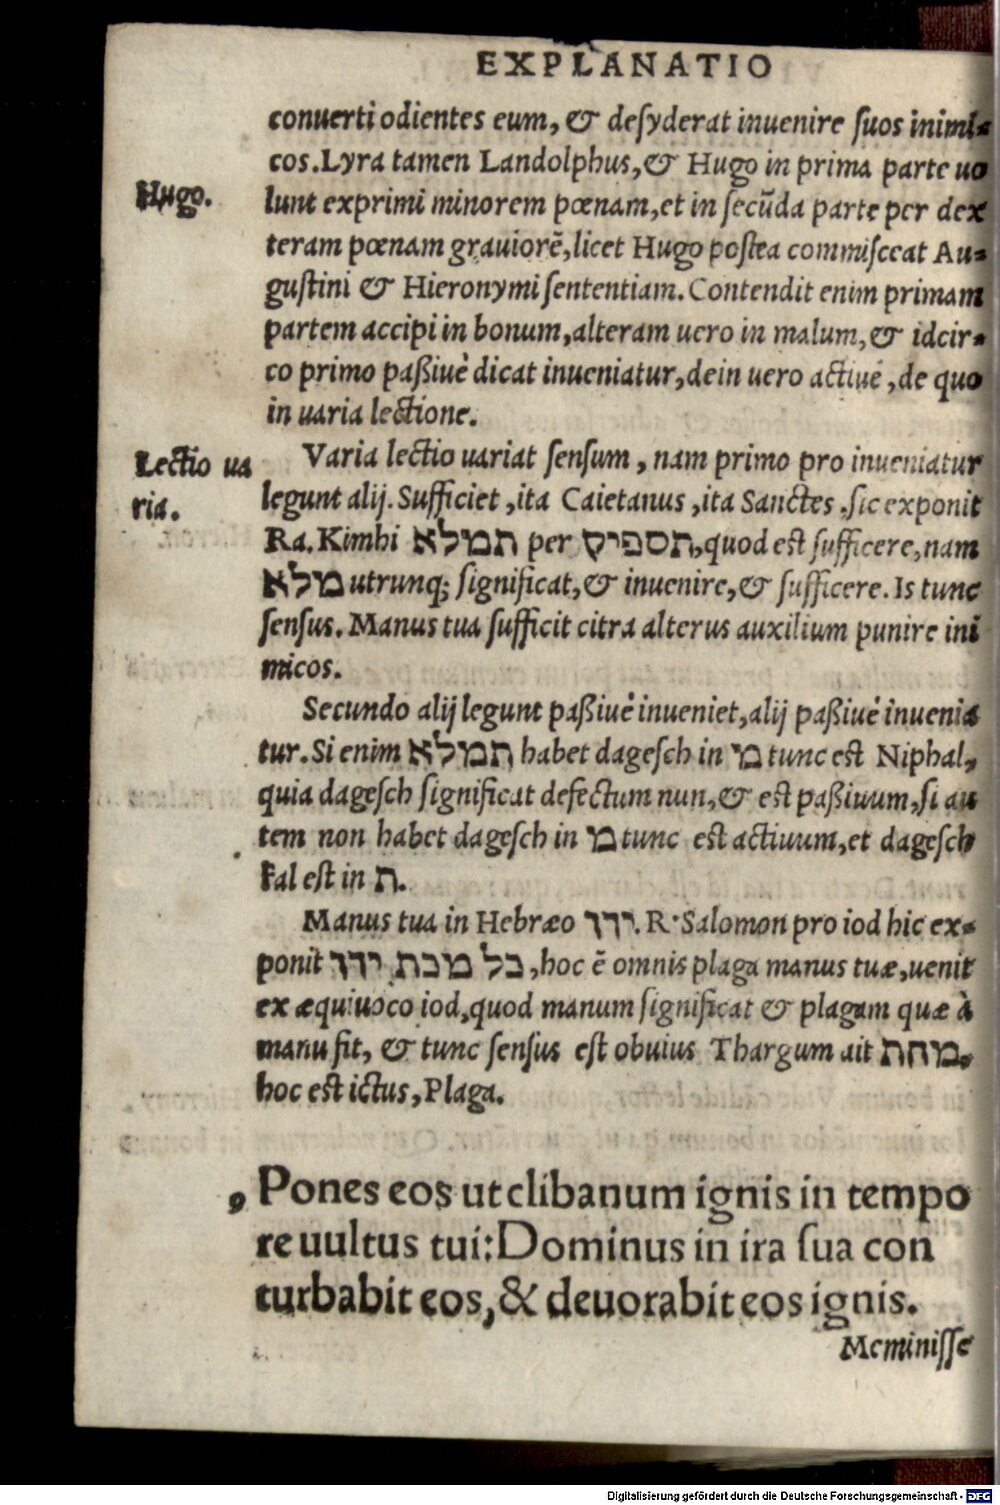 EXPLANATIO
conuerti odientes eum, & desyderat inuenire suos inimi-
cos. Lyra tamen Landolphus, & Hugo in prima parte uo
Hugo.
lunt exprimi minorem pœnam, et in secūda parte per dex
teram pœnam grauiorē, licet Hugo postea commisceat Au-
gustini & Hieronymi sententiam. Contendit enim primam
partem accipi in bonum, alteram uero in malum, & idcir-
co primo paßiuè dicat inueniatur, dein uero actiuè, de quo
in uaria lectione.
Lectio ua
ria.
Varia lectio uariat sensum, nam primo pro inueniatur
legunt alij. Sufficiet, ita Caietanus, ita Sanctes, sic exponit
Ra. Kimhi תמלא per תספיק, quod est sufficere, nam
מלא utrunq; significat, & inuenire, & sufficere. Is tunc
sensus. Manus tua sufficit citra alterus auxilium punire ini
micos.
Secundo alij legunt paßiuè inueniet, alij paßiuè inuenia
tur. Si enim תמלא habet dagesch in מ tunc est Niphal,
quia dagesch significat defectum nun, & est paßiuum, si au
tem non habet dagesch in מ tunc est actiuum, et dagesch
kal est in ת.
Manus tua in Hebræo ידך. R. Salomon pro iod hic ex-
ponit כל מכת ידך, hoc ē omnis plaga manus tuæ, uenit
ex æquiuoco iod, quod manum significat & plagam quæ à
manu fit, & tunc sensus est obuius Thargum ait מחת,
hoc est ictus, Plaga.
, Pones eos ut clibanum ignis in tempo
re uultus tui: Dominus in ira sua con
turbabit eos, & deuorabit eos ignis.
Meminisse
Digitalisierung gefördert durch die Deutsche Forschungsgemeinschaft - DFG